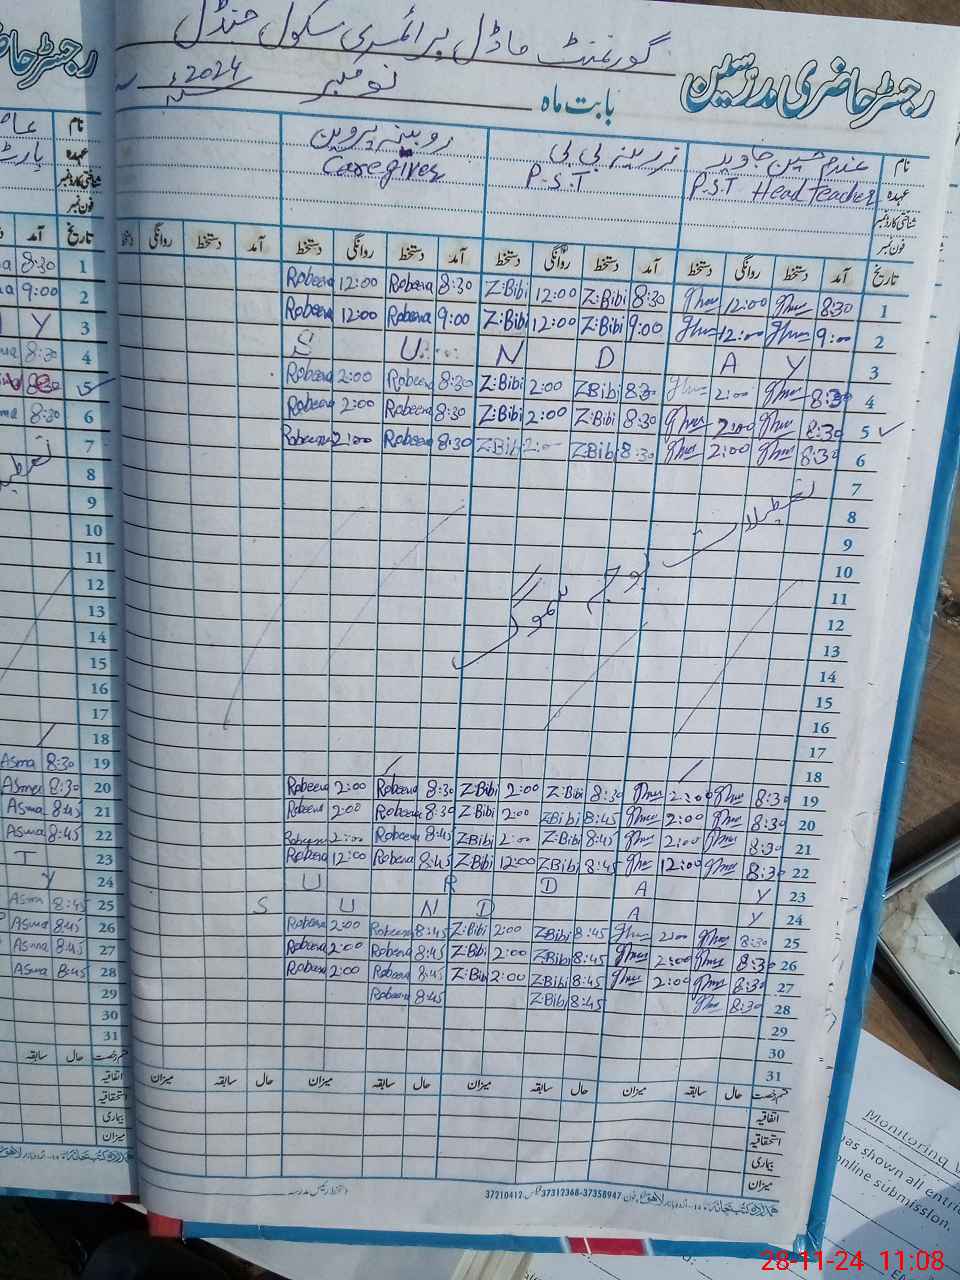 گورنمنٹ ماڈل پرائمری سکول
رجسٹر حاضری مدرسین
بابت ماہ نومبر 2024ء
نام غلام حسین جاوید زرینہ بی بی روبینہ پروین
عہدہ P.S.T Head Teacher P.S.T Caregiver
شناختی کارڈ نمبر
فون نمبر
تاریخ آمد دستخط روانگی دستخط آمد دستخط روانگی دستخط آمد دستخط روانگی دستخط آمد دستخط روانگی
1 8:30 12:00 8:30 Z.Bibi 12:00 Z:Bibi 8:30 Robeena 12:00 Robeena
2 9:00 12:00 9:00 Z.Bibi 12:00 Z:Bibi 9:00 Robeena 12:00 Robeena
3 S U N D A Y
4 8:30 2:00 8:30 Z.Bibi 2:00 Z:Bibi 8:30 Robeena 2:00 Robeena
5 8:30 2:00 8:30 Z.Bibi 2:00 Z:Bibi 8:30 Robeena 2:00 Robeena
6 8:30 2:00 8:30 Z.Bibi 2:00 Z.Bibi 8:30 Robeena 2:00 Robeena
7
8
تعطیلات بوجہ سموگ
9
10
11
12
13
14
15
16
17
18
19 8:30 2:00 8:30 Z.Bibi 2:00 Z:Bibi 8:30 Robeena 2:00 Robeena
20 8:30 2:00 8:45 ZBibi 2:00 Z:Bibi 8:30 Robeena 2:00 Robeena
21 8:30 2:00 8:45 Z.Bibi 2:00 Z.Bibi 8:45 Robeena 2:00 Robeena
22 8:30 12:00 8:45 ZBibi 12:00 Z:Bibi 8:45 Robeena 12:00 Robeena
23 U R D A Y
24 S U N D A Y
25 8:30 2:00 8:45 ZBibi 2:00 Z:Bibi 8:45 Robeena 2:00 Robeena
26 8:30 2:00 8:45 Z.Bibi 2:00 Z:Bibi 8:45 Robeena 2:00 Robeena
27 8:30 2:00 8:45 Z:Bibi 2:00 Z:Bibi 8:45 Robeena 2:00 Robeena
28 8:30 8:45 Z.Bibi 8:45 Robeena
29
30
31
قسم رخصت حال سابقہ میزان حال سابقہ میزان حال سابقہ میزان حال سابقہ میزان
اتفاقیہ
استحقاقیہ
بیماری
میزان
دستخط رئیس مدرسہ
37210412 37312368-37358947
رجسٹر حاضر
نام
عہدہ
شناختی کارڈ نمبر
فون نمبر
تاریخ آمد
1 8:30
2 9:00
3 Y
4 8:30
5 8:30
6 8:30
7
8
9
10
11
12
13
14
15
16
17
18
19 8:30 Asma
20 8:30 Asma
21 8:45 Asma
22 8:45 Asma
23 T
24 Y
25 8:45 Asma
26 8:45 Asma
27 8:45 Asma
28 8:45 Asma
29
30
31
قسم رخصت حال سابقہ
اتفاقیہ
استحقاقیہ
بیماری
میزان
Monitoring
has shown all entri
online submission.
28-11-24 11:08